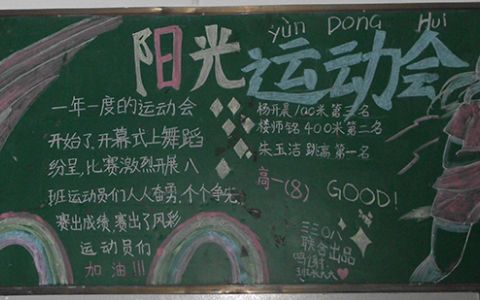 yùn Dong Hui
阳光运动会
一年一度的运动会
开始了,开幕式上舞蹈
纷呈,比赛激烈开展,八
班运动员们人人奋勇,个个争先,
赛出成绩,赛出了风彩
运动员们
加油!!!
杨开晨100米第三名
楼师铭400米第二名
朱玉洁 跳高 第一名
高一(8) GOOD!
三三〇八
联合出品
鸣谢